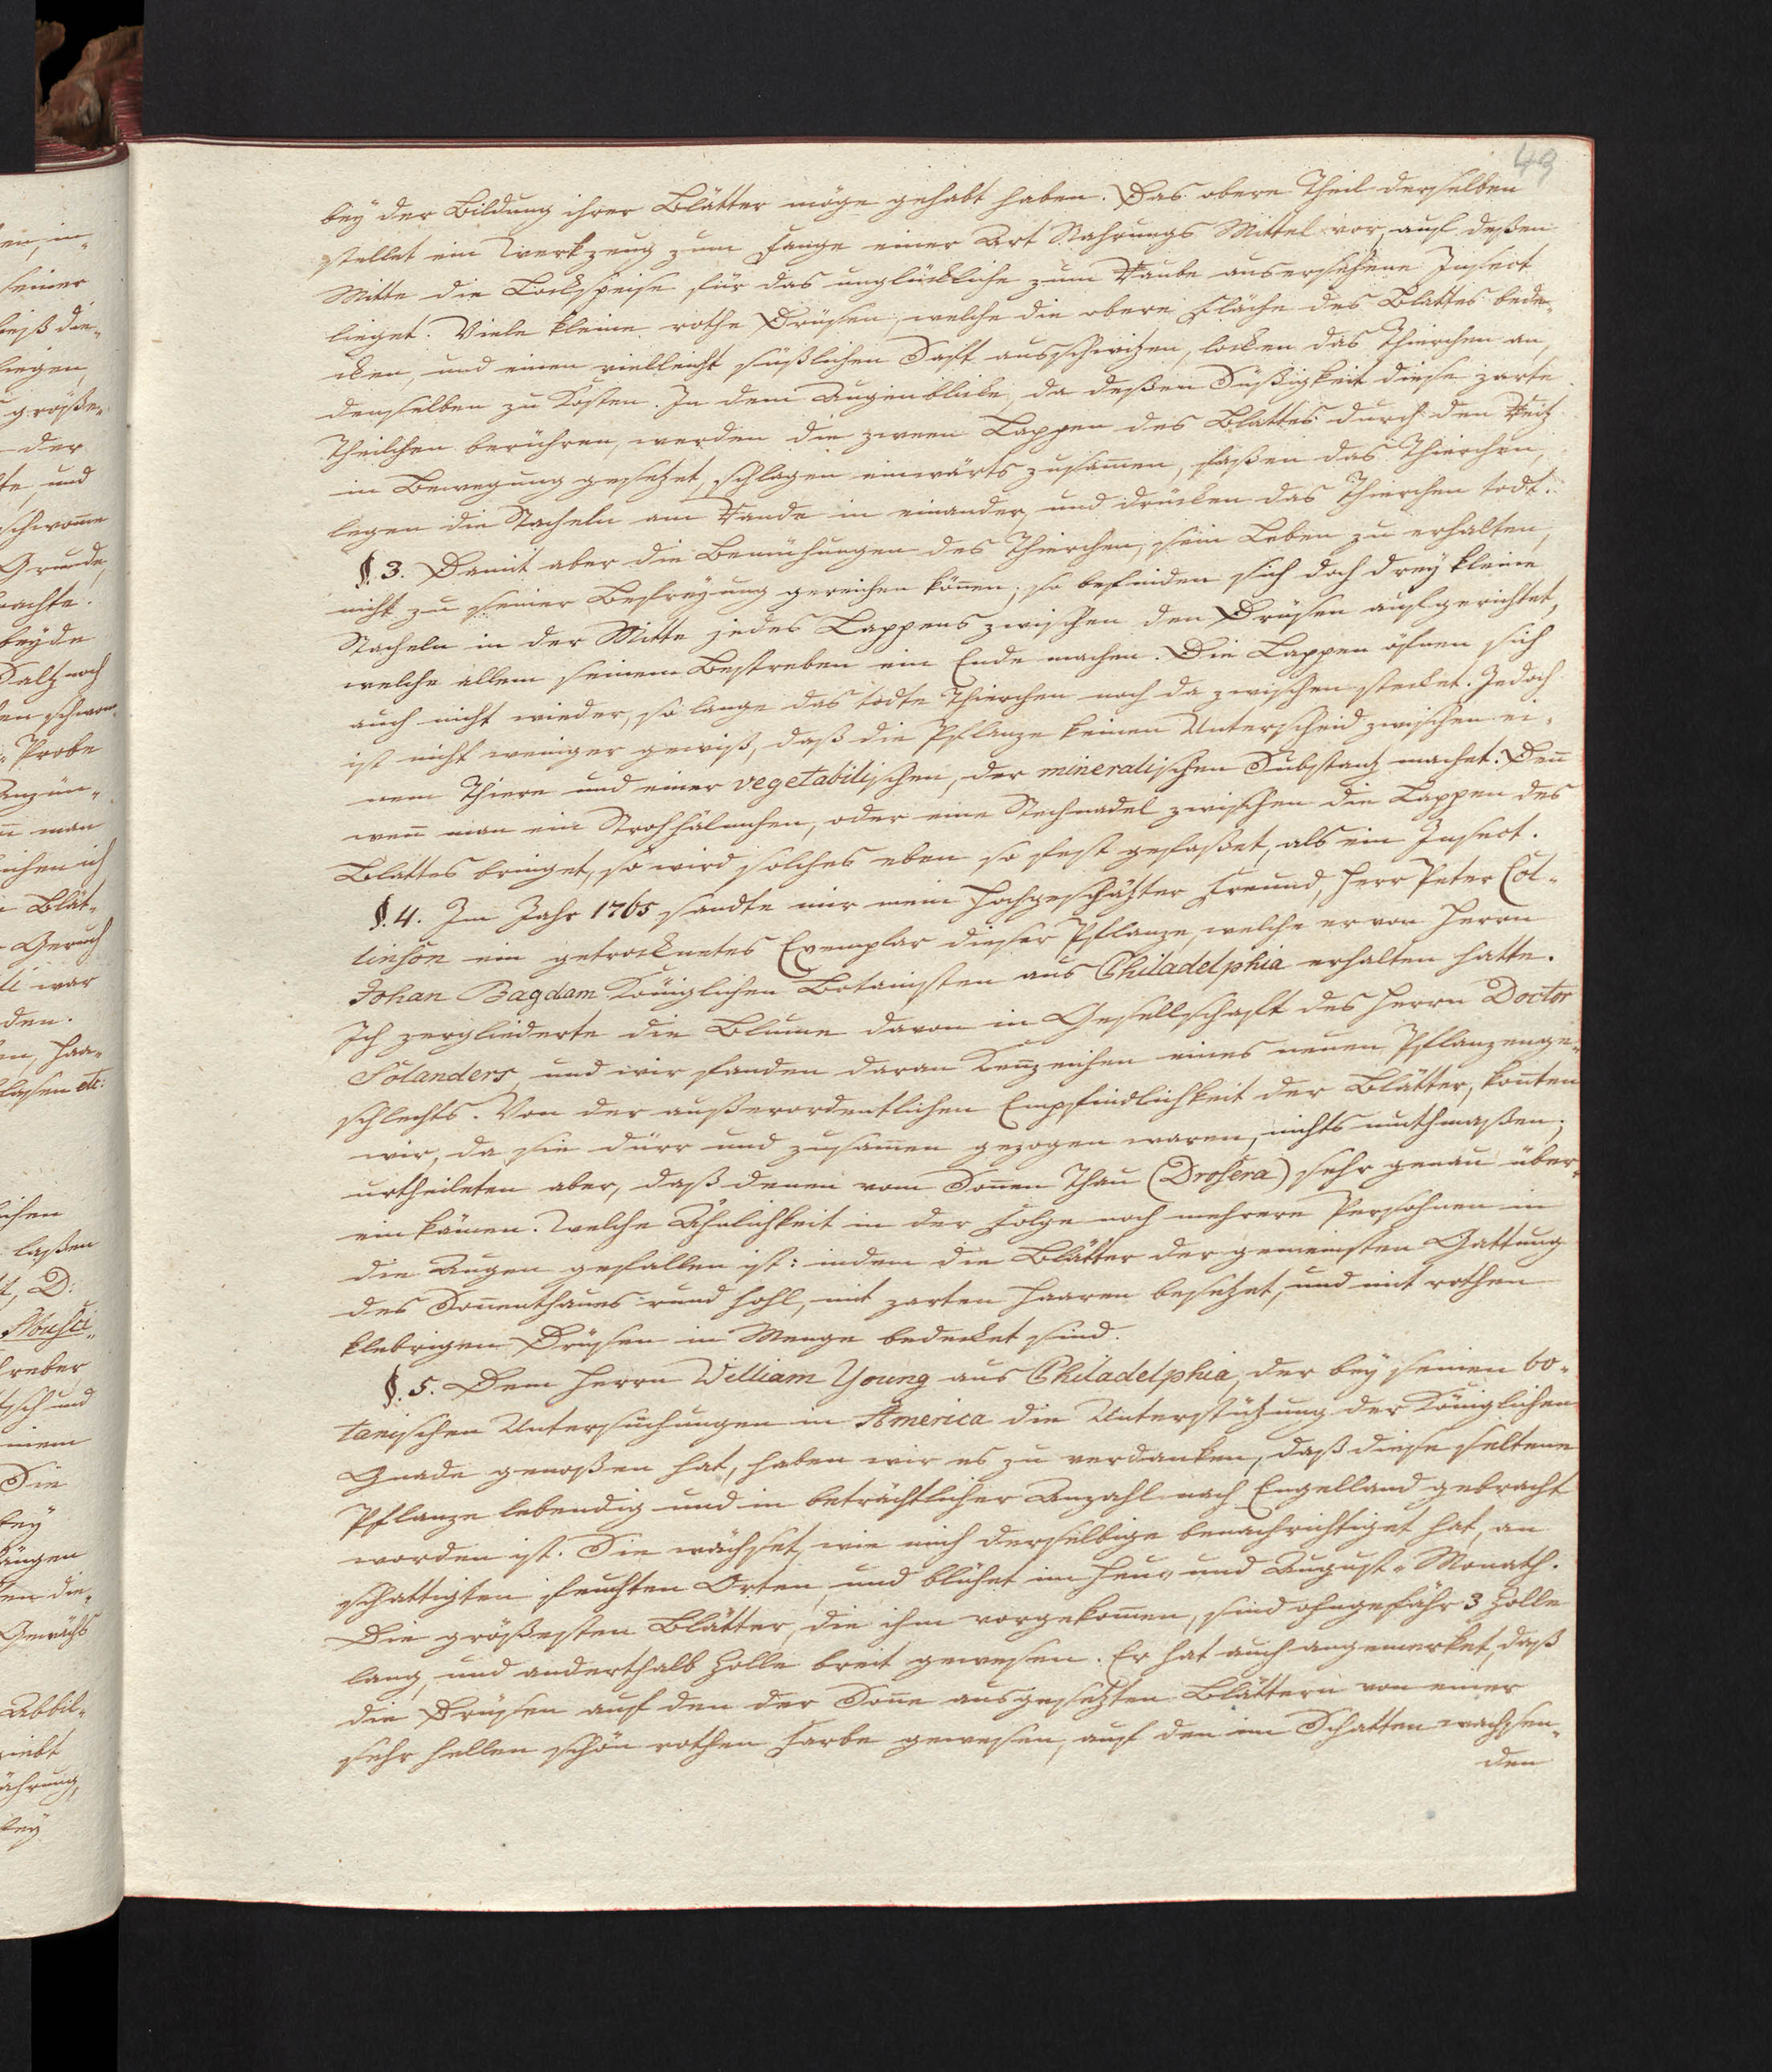 49
bey der Bildung ihrer Blätter möge gehabt haben. Das obere Theil derselben
stellet ein Werkzeug zum Fange einer Art Nahrungs Mittel vor, auf deßen
Mitte die Lockspeise für das unglückliche zum Raube ausersehene Insect
lieget. Viele kleine rothe Drüsen, welche die obere Fläche des Blattes bede-
cken, und einen vielleicht süßlichen Saft ausschwitzen, locken das Thierchen an
denselben zu Kosten. In dem Augenblicke, da deßen Süßigkeit diese zarte
Theilchen berühren, werden die zween Lappen des Blattes durch den Reitz
in Bewegung gesetzet, schlagen einwärts zusam̄en, faßen das Thierchen,
legen die Stacheln am Rande in einander, und drücken das Thierchen todt.
§. 3. Damit aber die Bemühungen des Thierchen, sein Leben zu erhalten,
nicht zu seiner Befreyung gereichen kön̄en; so befinden sich doch drey kleine
Stacheln in der Mitte jedes Lappens zwischen den Drüsen aufgerichtet,
welche allem seinem Bestreben ein Ende machen. Die Lappen öfnen sich
auch nicht wieder, so lange das todte Thierchen noch da zwischen stecket. Jedoch
ist nicht weniger gewiß, daß die Pflanze keinen Unterscheid zwischen ei-
nem Thiere und einer vegetabilischen, der mineralischen Substantz machet. Den̄
wen̄ man ein Strohhälmchen, oder eine Stechnadel zwischen die Lappen des
Blattes bringet, so wird solches eben so fest gefaßet, als ein Insect.
§. 4. Im Jahr 1765 sandte mir mein hochgeschätzter Freund, Herr Peter Col-
linson ein getrocknetes Exemplar dieser Pflanze, welche er von Herrn
Johan Bagdam Königlichen Botanisten aus Philadelphia erhalten hatte.
Ich zergliederte die Blume davon in Gesellschaft des Herrn Doctor
Solanders, und wir fanden daran Ken̄zeichen eines neuen Pflanzenge-
schlechts. Von der außerordentlichen Empfindlichkeit der Blätter, kon̄ten
wir, da sie dürr und zusam̄en gezogen waren, nichts muthmaßen;
urtheileten aber, daß denen vom Son̄en Thau (Drosera) sehr genau über-
ein kämen. Welche Ähnlichkeit in der Folge noch mehrere Persohnen in
die Augen gefallen ist: indem die Blätter der gemeinsten Gattung
des Son̄enthaues rund hohl, mit zarten Haaren besetzet, und mit rothen
klebrigen Drüsen in Menge bedecket sind.
§. 5. Dem Herrn William Young aus Philadelphia, der bey seinen bo-
tanischen Untersuchungen in America die Unterstützung der Königlichen
Gnade genoßen hat, haben wir es zu verdanken, daß diese seltene
Pflanze lebendig und in beträchtlicher Anzahl nach Engelland gebracht
worden ist. Sie wächset, wie mich derselbige benachrichtiget hat, an
schattigten feuchten Orten, und blühet im Heu- und August-Monath.
Die größesten Blätter, die ihm vorgekom̄en, sind ohngefähr 3 Zolle
lang, und anderthalb Zolle breit gewesen. Er hat auch angemerket, daß
die Drüsen auf den der Son̄e ausgesetzten Blättern von einer
sehr hellen schön rothen Farbe gewesen, auf den im Schatten wachsen-
den